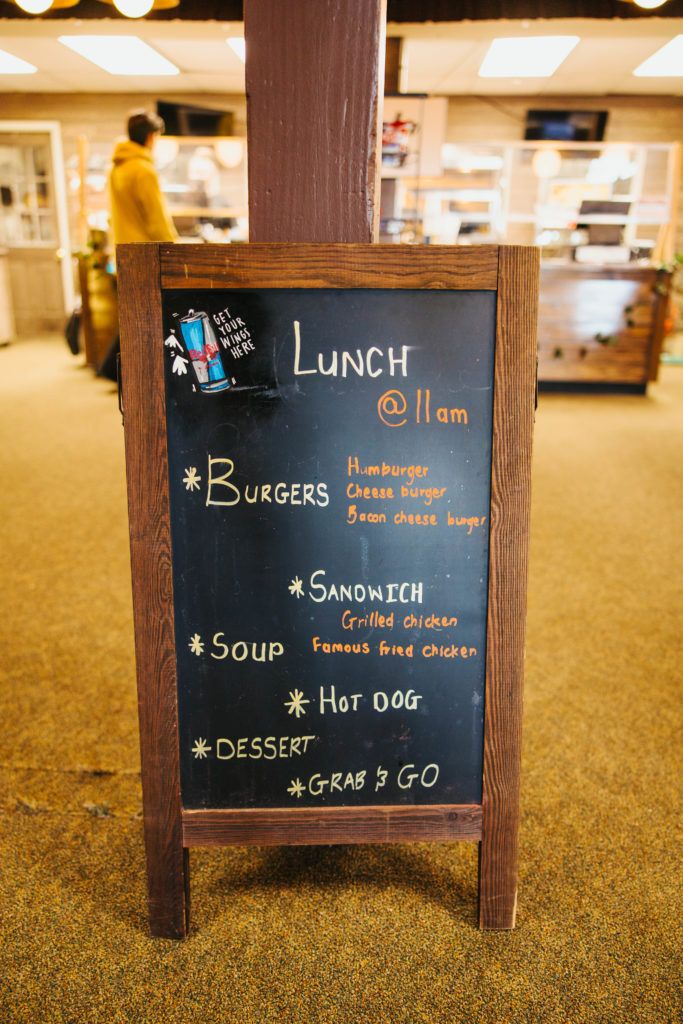 GET
YOUR
WINGS
HERE
LUNCH
@ 11 am
* BURGERS
Humburger
Cheese burger
Bacon cheese burger
* SANDWICH
Grilled chicken
Famous fried chicken
* SOUP
* HOT DOG
* DESSERT
* GRAB & GO